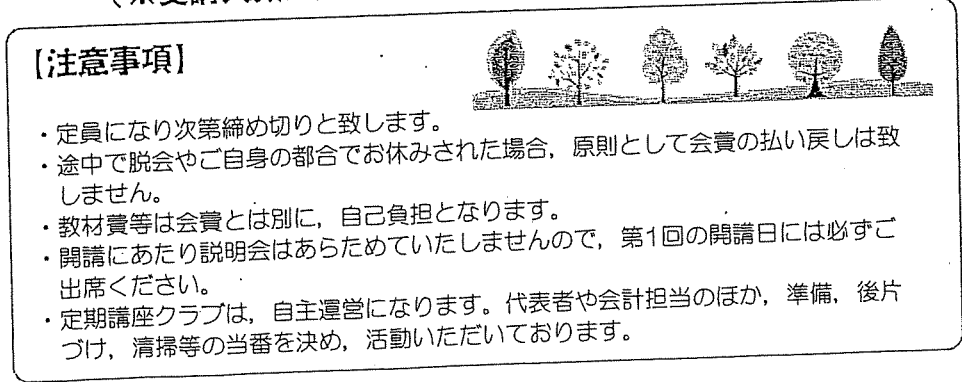 【注意事項】
・定員になり次第締め切りと致します。
・途中で脱会やご自身の都合でお休みされた場合，原則として会費の払い戻しは致
しません。
・教材費等は会費とは別に，自己負担となります。
・開講にあたり説明会はあらためていたしませんので，第1回の開講日には必ずご
出席ください。
・定期講座クラブは，自主運営になります。代表者や会計担当のほか，準備，後片
づけ，清掃等の当番を決め，活動いただいております。